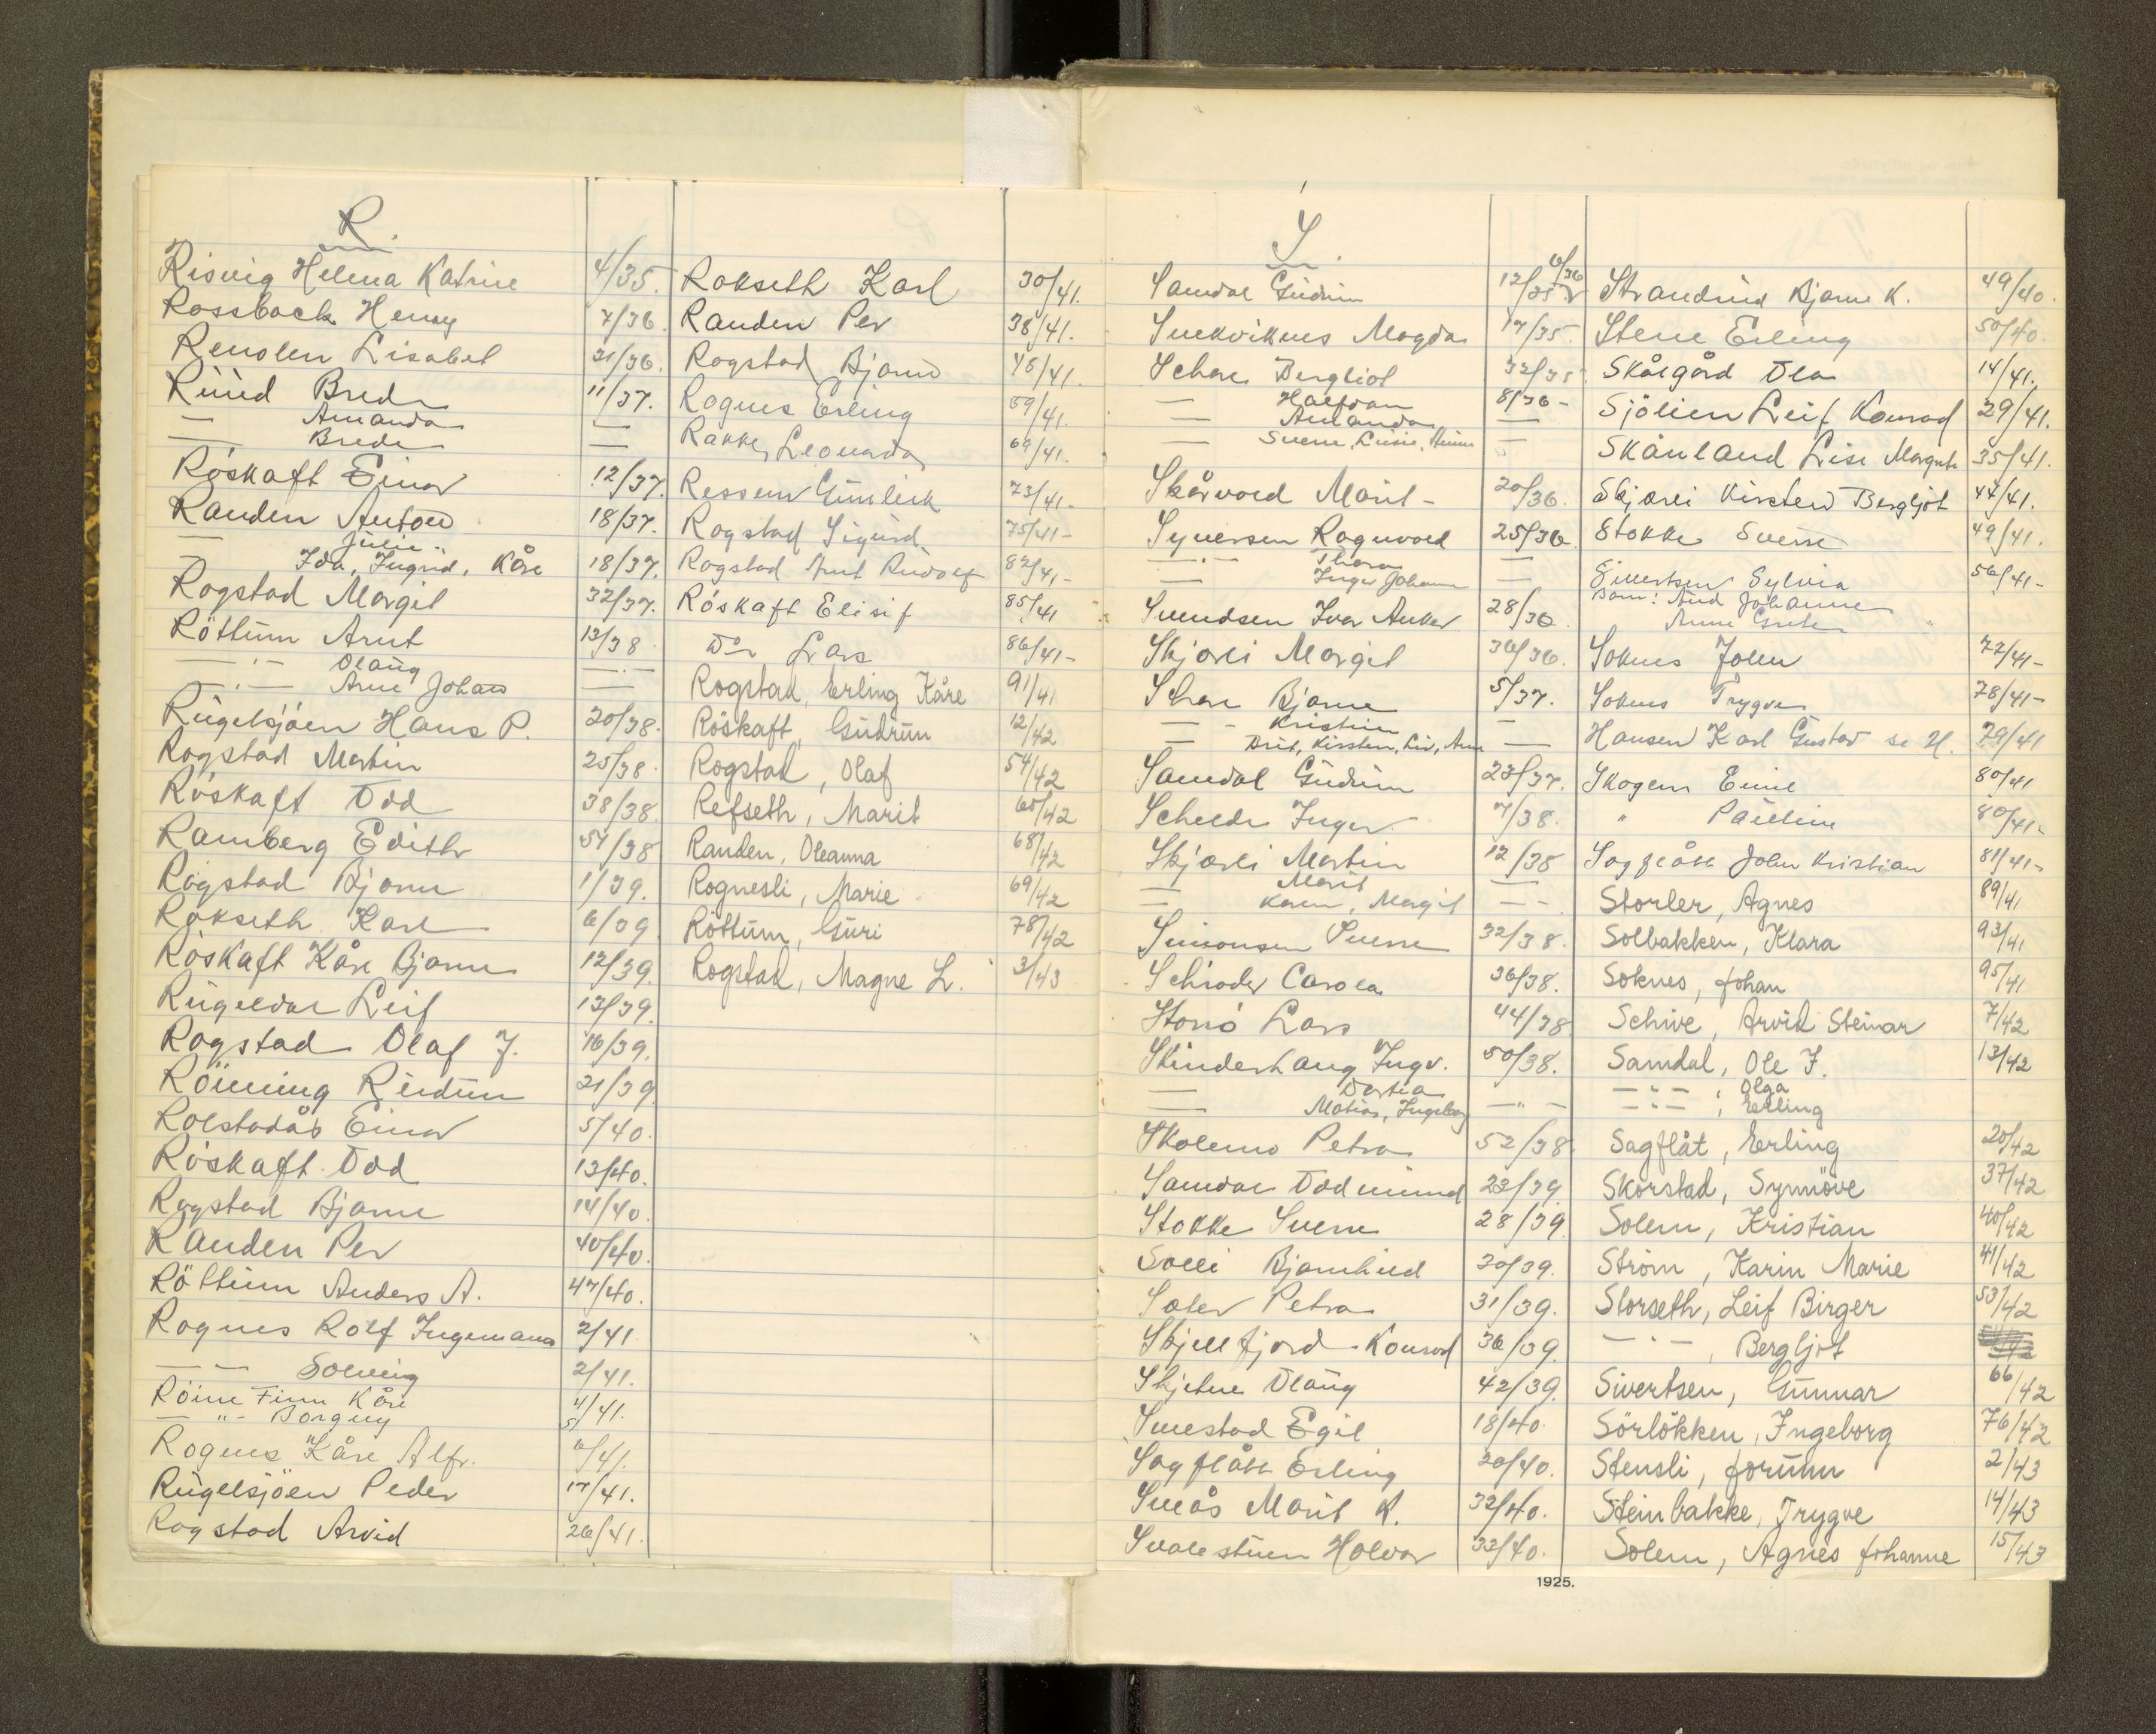 R.
Risvig Helena Katrine 4/35.
Rossback Henry 7/36
Renolen Lisabet 21/36.
Ruud Brede 11/37.
— Amanda —
— Brede —
Röskaft Einar 12/37.
Randen Anton 18/37.
— Julie
Ida, Ingrid, Kåre 18/37.
Rogstad Margit 32/37.
Röttum Arnt 13/38
—"— Olaug —"—
—"— Arne Johan —
Rugelsjöen Hans P. 20/38.
Rogstad Martin 25/38.
Röskaft Odd 38/38.
Ramberg Edith 54/38
Rogstad Bjarne 1/39.
Rokseth Karl 6/39
Röskaft Kåre Bjarne 12/39.
Rugeldal Leif 13/39.
Rogstad Olaf J. 16/39.
Römning Reidun 21/39
Rolstadås Einar 5/40.
Röskaft Odd 13/40.
Rogstad Bjarne 14/40.
Randen Per 40/40.
Röttum Anders A. 47/40.
Rognes Rolf Ingemann 2/41
— — Solveig 2/41.
Röine Finn Kåre 4/41.
— " - Borgny 5/
Rognes Kåre Alfr. 6/41.
Rugelsjöen Peder 17/41.
Rogstad Arvid 26/41.
Rokseth Karl 30/41.
Randen Per 38/41.
Rogstad Bjarne 48/41.
Rognes Erling 59/41.
Rakke, Leonarda 69/41.
Ressem Gunleik 73/41-
Rogstad Sigurd 75/41-
Rogstad Arnt Rudolf 82/41-
Röskaft Elisif 85/41
Do Lars 86/41-
Rogstad, Erling Kåre 91/41
Röskaft, Gudrun 12/42
Rogstad, Olaf 54/42
Refseth, Marit 60/42
Randen, Oleanna 68/42
Rognesli, Marie 69/42
Röttum, Guri 78/42
Rogstad, Magne L. 3/43
S.
Samdal Gudrun 12/35 6/36
Snekviknes Magda 17/35.
Schei Bergliot 32/35
— Halfdan 8/36-
— Amanda —
— Sverre, Luise, —
Skårvold Marit - 20/36.
Syversen Ragnvald 25/36
—"— Thora —
— Inger Johanne —
Svendsen Ivar Anker 28/36
Skjærli Margit 36/36.
Schei Bjarne 5/37.
— - Kristine —
— Brit, Kirsten, Liv, Arne —
Samdal Gudrun 23/37.
Schelde Inger 7/38.
Skjærli Martin 12/38
— Marit —
— Karen, Margit - -
Simonsen Sverre 32/38.
Schröder Carola 36/38.
Storrö Lars 44/38
Skinderhaug Ingv. 50/38.
— Dortia
— Matias, Ingeborg —"—
Skolemo Petra 52/38
Samdal Oddmund 23/39.
Stokke Sverre 28/39
Solli Bjarnhild 30/39.
Sæter Petra 31/39.
Skjellfjord Konrad 36/39.
Skjetne Olaug 42/39.
Smestad Egil 18/40.
Sagflått Erling 20/40.
Småås Marit K. 32/40.
Svalestuen Halvor 33/40.
Strandrud Bjarne K. 49/40.
Stene Erling 50/40.
Skårgård Ola 14/41.
Sjölien Leif Konrad 29/41.
Skånland Lise Margrete 35/41.
Skjærli Kirsten Bergljot 44/41.
Stokke Sverre 49/41.
Sivertsen Sylvia 56/41-
barn: Aud Johanne
Anne Grete
Soknes John 72/41-
Soknes Trygve 78/41-
Hansen Karl Gustav se H. 79/41
Skogen Emil 80/41
" Pauline 80/41-
Sagflått John Kristian 81/41-
Storler, Agnes 89/41
Solbakken, Klara 93/41
Soknes, Johan 95/41
Schive, Arvid Steinar 7/42
Samdal, Ole J. 13/42
—"—, Olga
—"—, Erling
Sagflåt, Erling 20/42
Skorstad, Synnöve 37/42
Solem, Kristian 40/42
Ström, Karin Marie 41/42
Storseth, Leif Birger 53/42
—"—, Bergljot
Sivertsen, Gunnar 66/42
Sörlökken, Ingeborg 76/42
Stensli, Jorunn 2/43
Steinbakke, Trygve 14/43
Solem, Agnes Johanne 15/43
1925.